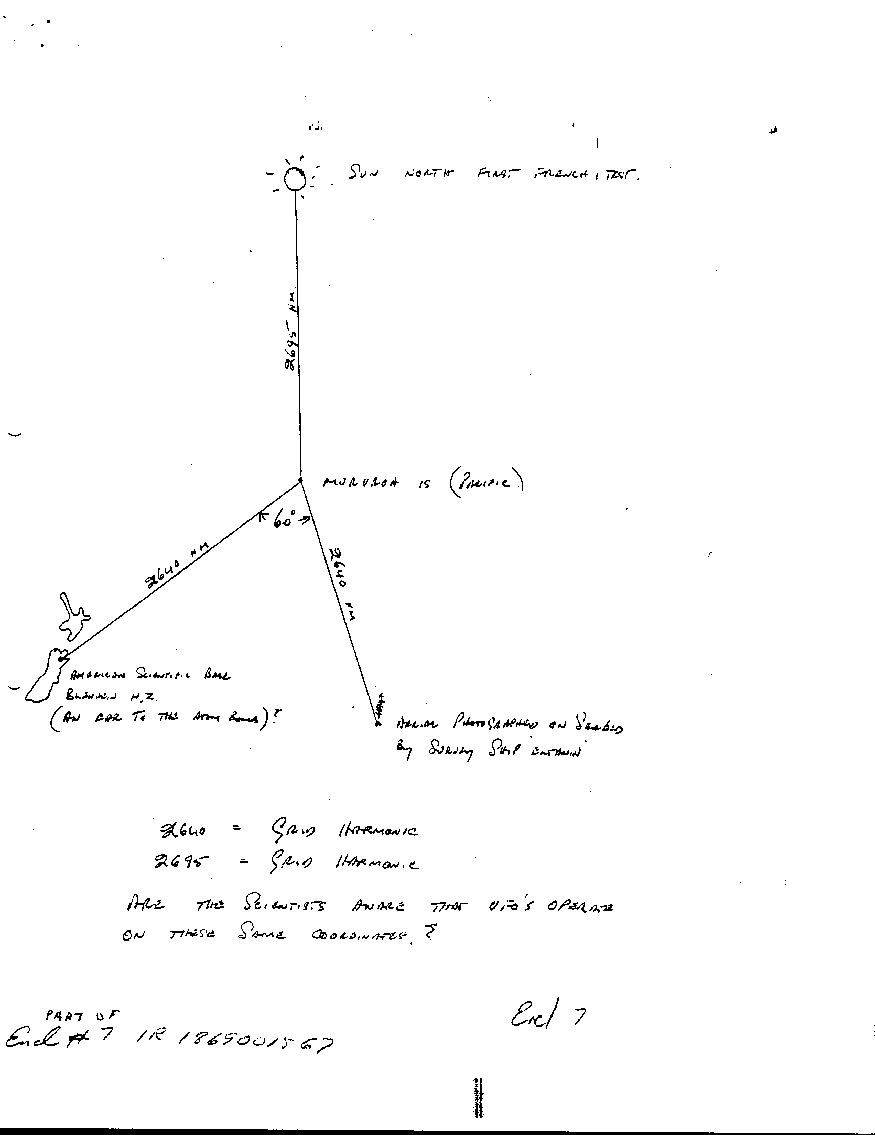 SUN NORTH FIRST FRENCH TEST.
2695 NM
MURUROA IS (PACIFIC)
60°
2640 NM
2640 NM
AMERICAN SCIENTIFIC BASE
BLENHEIM N.Z.
(AN EAR TO THE ATOM BOMB)?
AERIAL PHOTOGRAPHED ON SEABED
BY SURVEY SHIP ELTANIN
2640 = GRID HARMONIC
2695 = GRID HARMONIC
ARE THE SCIENTISTS AWARE THAT UFO'S OPERATE
ON THESE SAME COORDINATES.?
Encl 7
PART OF
Encl # 7 IR 1869001567